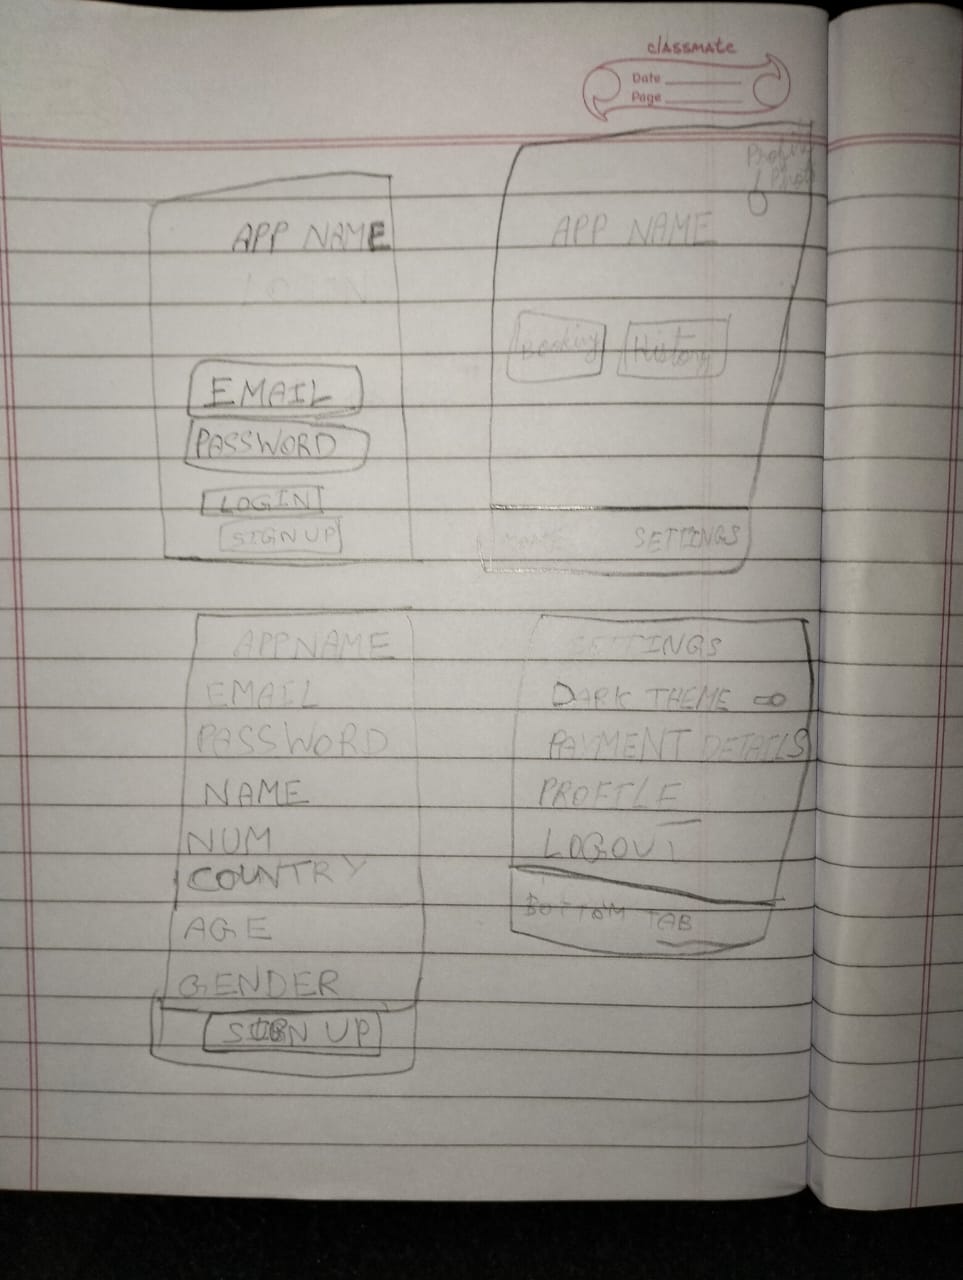 classmate
Date
Page
APP NAME
LOGIN
EMAIL
PASSWORD
LOGIN
SIGN UP
Profile
APP NAME
Booking
History
SETTINGS
APPNAME
EMAIL
PASSWORD
NAME
NUM
COUNTRY
AGE
GENDER
SIGN UP
SETTINGS
DARK THEME
PAYMENT DETAILS
PROFILE
LOGOUT
BOTTOM TAB